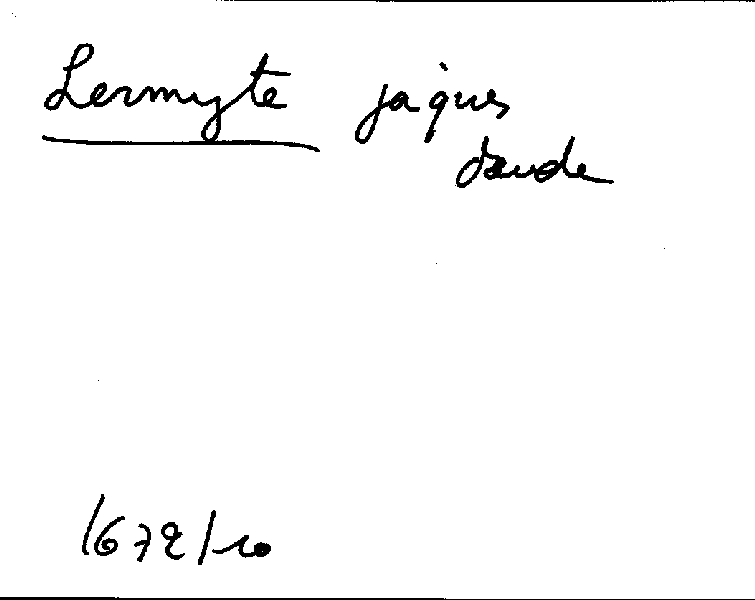 Lermyte jaques
1672/10